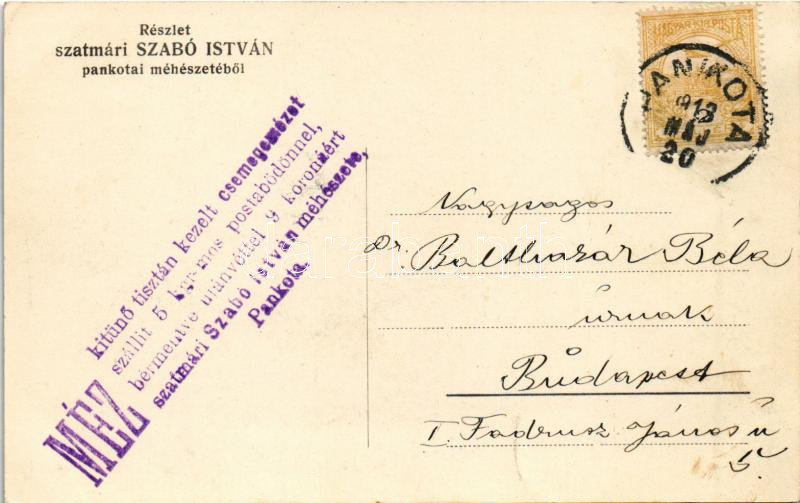 Részlet
szatmári SZABÓ ISTVÁN
pankotai méhészetéből
MAGYAR KIR. POSTA
PANKOTA
913
MÁJ
20
MÉZ
kitünő tisztán kezelt csemegemézet
szállit 5 kgr-mos postabödönnel,
bérmentve utánvéttel 9 koronáért
szatmári Szabó István méhészete,
Pankota.
Nagyságos
Dr. Balthazár Béla
úrnak
Budapest
I. Fadrusz János u
5.